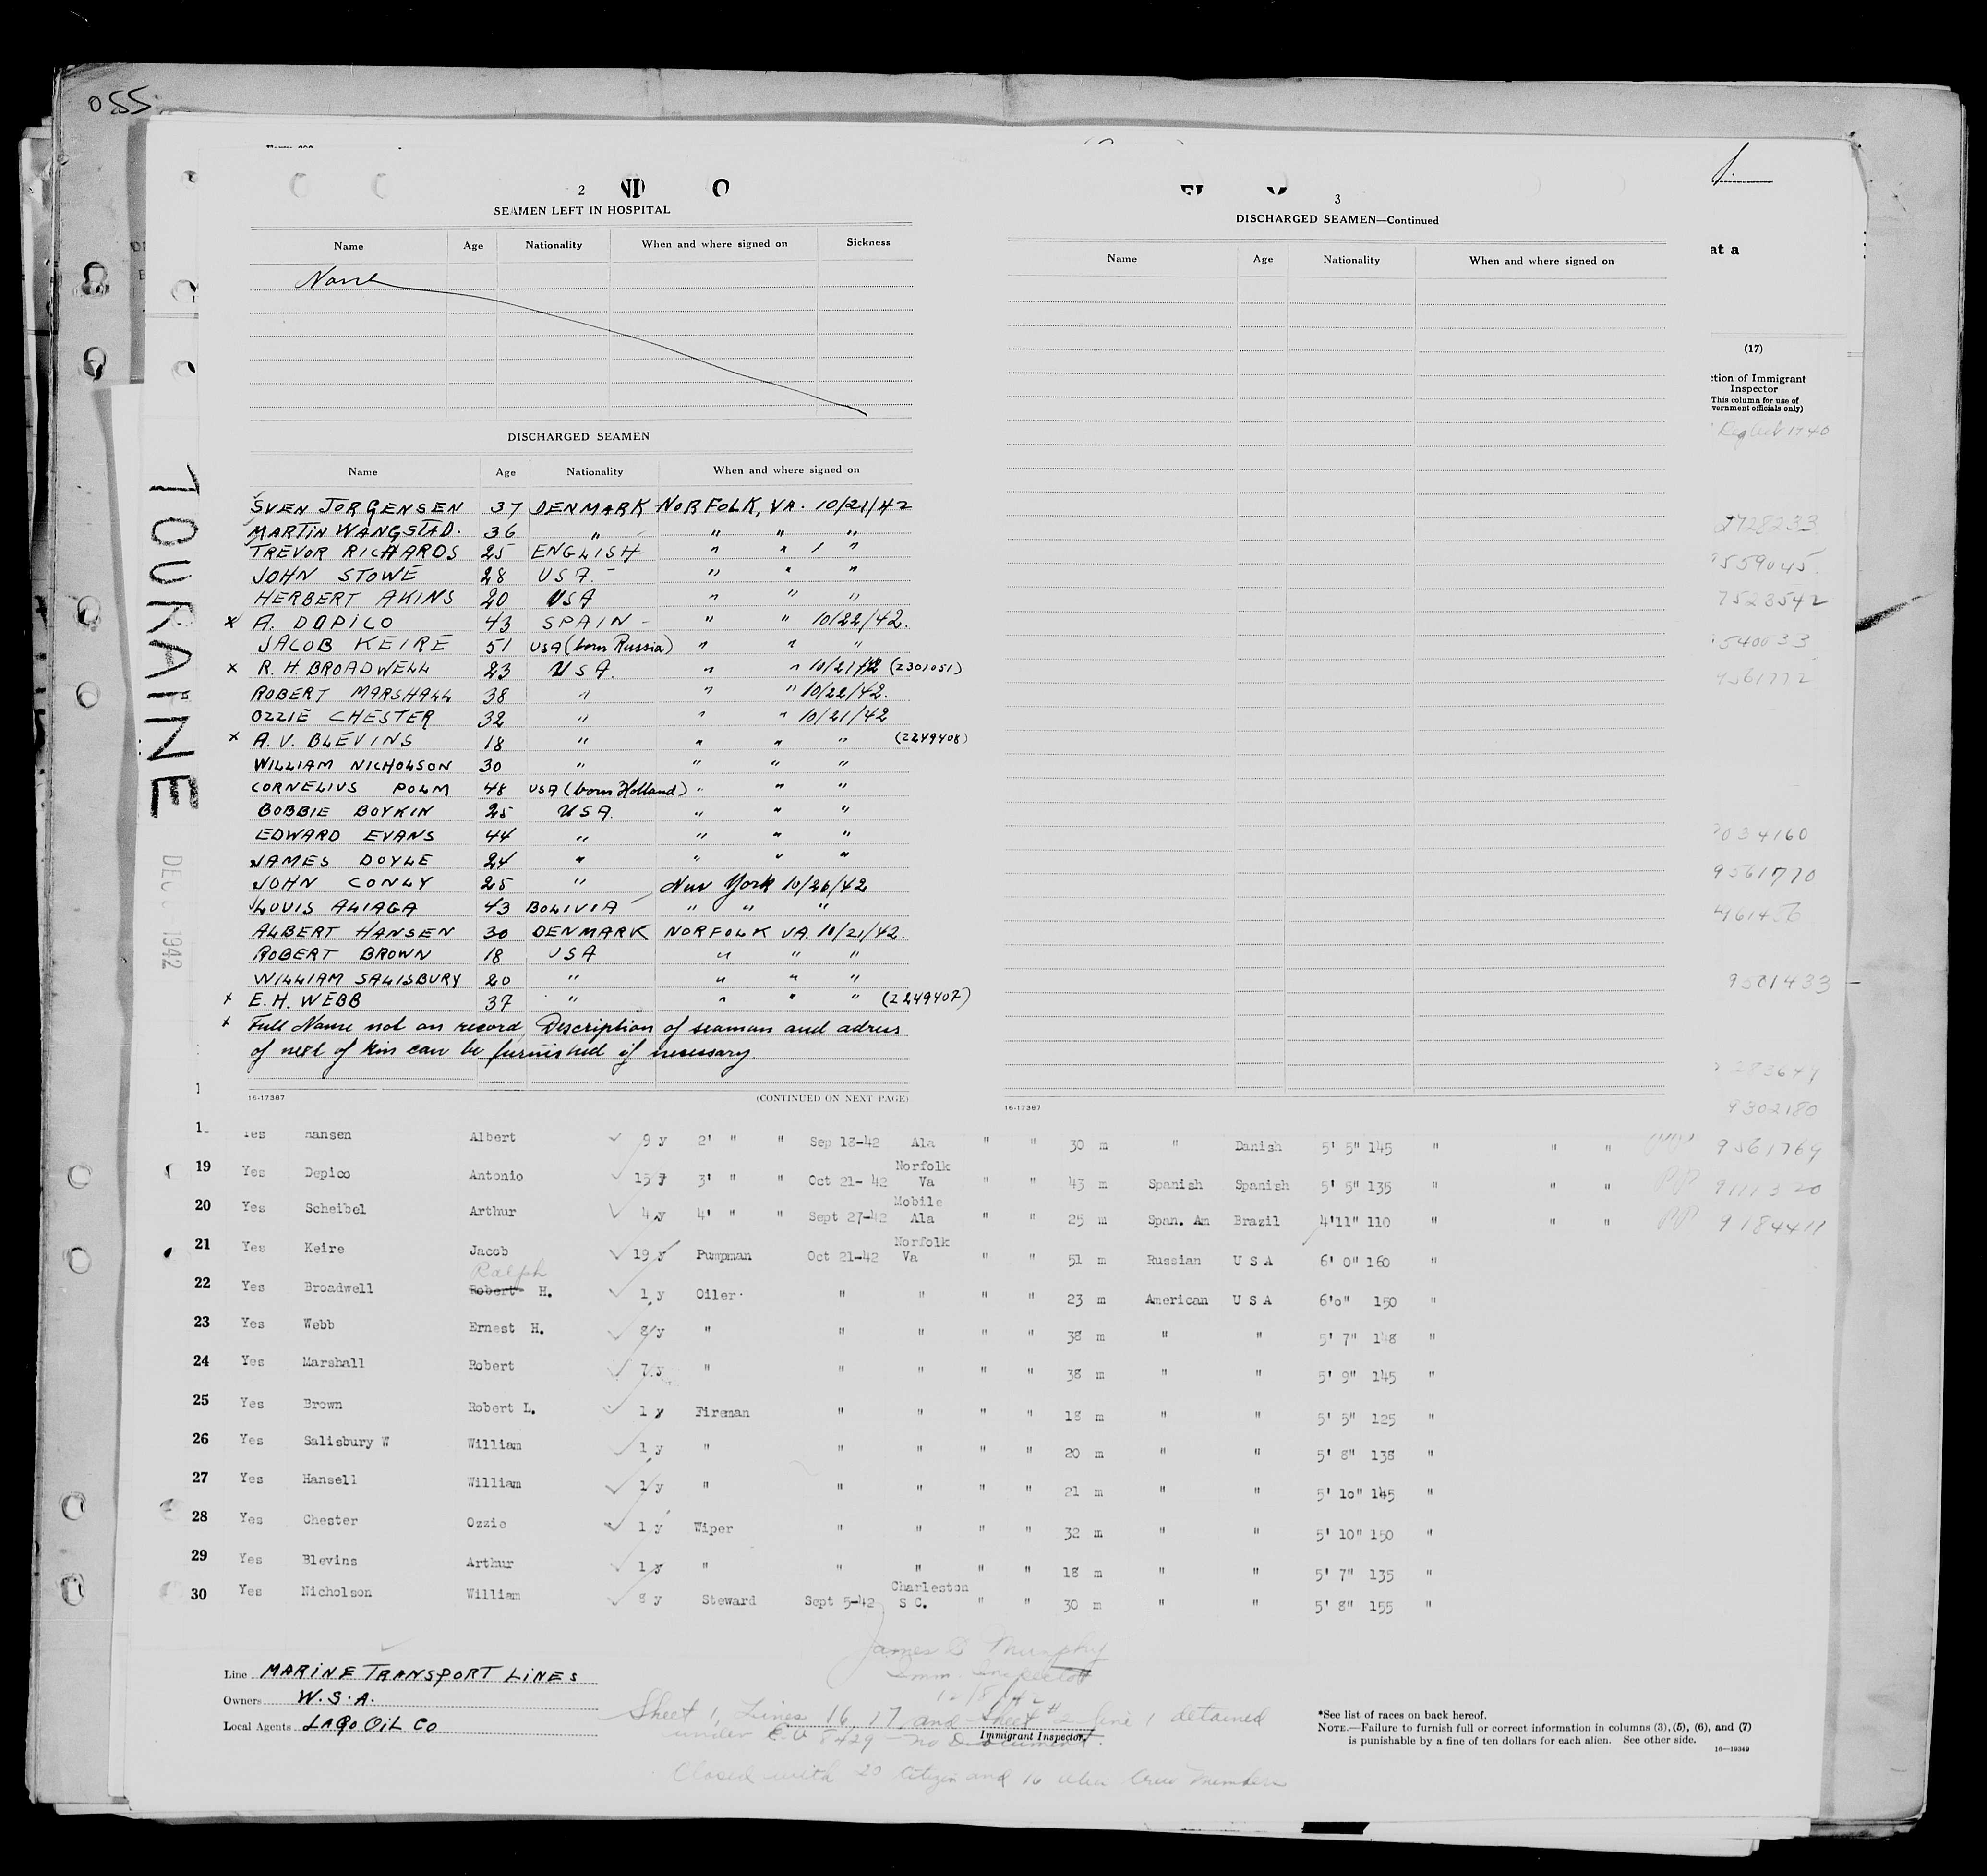 055
TOURAINE
1942
2
SEAMEN LEFT IN HOSPITAL
Name Age Nationality When and where signed on Sickness
None
DISCHARGED SEAMEN
Name Age Nationality When and where signed on
SVEN JORGENSEN 37 DENMARK NORFOLK, VA. 10/21/42
MARTIN WANGSTAD. 36 " " " "
TREVOR RICHARDS 25 ENGLISH " " "
JOHN STOWE 28 USA. " " "
HERBERT AKINS 20 USA " " "
x A. DOPICO 43 SPAIN - " " 10/22/42.
JACOB KEIRE 51 USA (born Russia) " " "
x R. H. BROADWELL 23 USA. " " 10/21/42 (2301051)
ROBERT MARSHALL 38 " " " 10/22/42.
OZZIE CHESTER 32 " " " 10/21/42
x A. V. BLEVINS 18 " " " " (2249408)
WILLIAM NICHOLSON 30 " " " "
CORNELIUS POLM 48 USA (born Holland) " " "
BOBBIE BOYKIN 25 USA. " " "
EDWARD EVANS 44 " " " "
JAMES DOYLE 24 " " " "
JOHN CONLY 25 " New York 10/26/42
LOUIS ALIAGA 43 BOLIVIA " " "
ALBERT HANSEN 30 DENMARK NORFOLK VA. 10/21/42.
ROBERT BROWN 18 USA " " "
WILLIAM SALISBURY 20 " " " "
x E. H. WEBB 37 " " " " (2249407)
x Full Name not on record, Description of seaman and adress
of next of kin can be furnished if necessary.
16-17387 (CONTINUED ON NEXT PAGE)
3
DISCHARGED SEAMEN—Continued
Name Age Nationality When and where signed on
16-17387
at a
(17)
ction of Immigrant
Inspector
This column for use of
vernment officials only)
7523542
034160
9561770
9302180
Yes Hansen Albert 9 y 2' " " Sep 18-42 Ala " " 30 m " Danish 5' 5" 145 " " " 9561769
19 Yes Depico Antonio 15 y 3' " " Oct 21- 42 Norfolk Va " " 43 m Spanish Spanish 5' 5" 135 " " " PP 9111320
20 Yes Scheibel Arthur 4 y 4' " " Sept 27-42 Mobile Ala " " 25 m Span. Am Brazil 4'11" 110 " " " PP 9184411
21 Yes Keire Jacob 19 y Pumpman Oct 21-42 Norfolk Va " " 51 m Russian U S A 6' 0" 160 "
22 Yes Broadwell Robert Ralph H. 1 y Oiler " " " " 23 m American U S A 6'0" 150 "
23 Yes Webb Ernest H. 8 y " " " " " 38 m " " 5' 7" 148 "
24 Yes Marshall Robert 7 y " " " " " 38 m " " 5' 9" 145 "
25 Yes Brown Robert L. 1 y Fireman " " " " 18 m " " 5' 5" 125 "
26 Yes Salisbury W William 1 y " " " " " 20 m " " 5' 8" 138 "
27 Yes Hansell William 1 y " " " " " 21 m " " 5' 10" 145 "
28 Yes Chester Ozzie 1 y Wiper " " " " 32 m " " 5' 10" 150 "
29 Yes Blevins Arthur 1 y " " " " " 18 m " " 5' 7" 135 "
30 Yes Nicholson William 8 y Steward Sept 5-42 Charleston S C. " " 30 m " " 5' 8" 155 "
James D Murphy
Imm. Inspector
12/8/42
Line MARINE TRANSPORT LINES
Owners W.S.A.
Local Agents LAGO OIL CO
Sheet 1, Lines 16, 17, and Sheet #2 line 1 detained
under E.O 8429 - no Document.
Immigrant Inspector.
Closed with 20 Citizen and 16 alien Crew Members
*See list of races on back hereof.
NOTE.—Failure to furnish full or correct information in columns (3), (5), (6), and (7)
is punishable by a fine of ten dollars for each alien. See other side.
16—19349